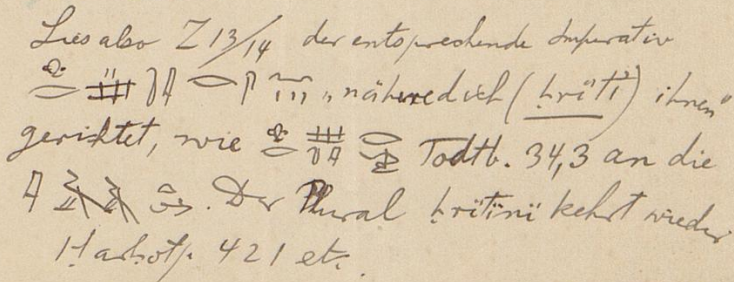 Lies also Z 13/14 der entsprechende Imperativ
„nähere dich (ḫrïtï) ihnen“
gerichtet, wie Todtb. 34,3 an die
. Der Plural ḫrïtïnï kehrt wieder
Harhotp. 421 etc.